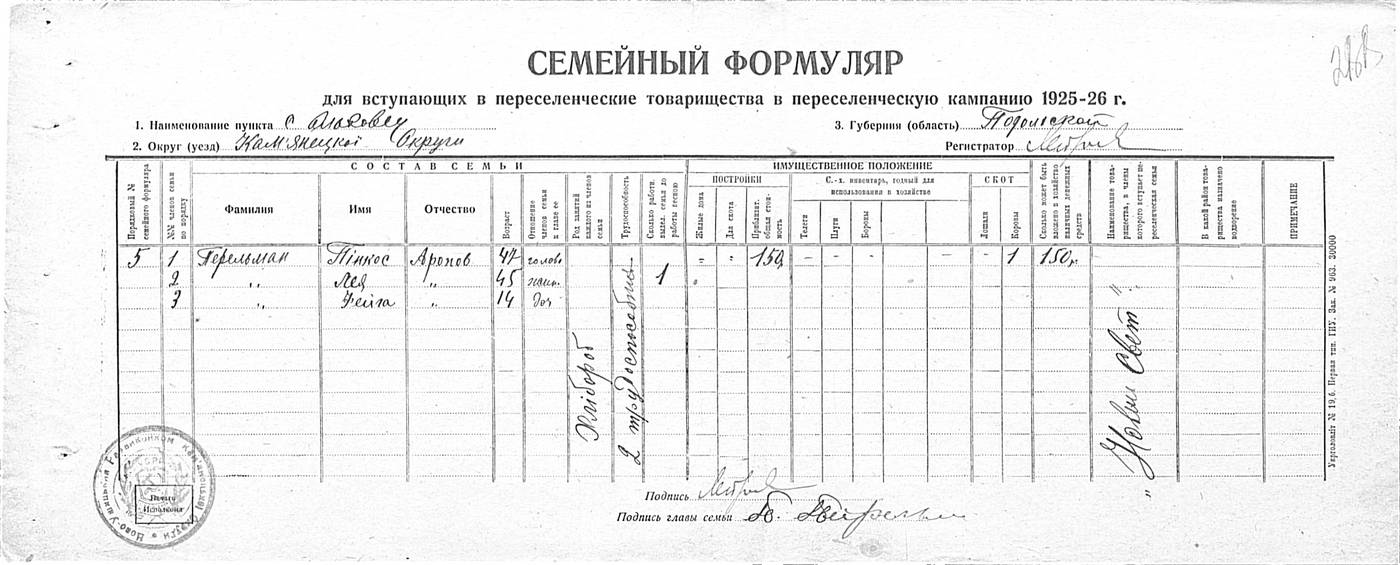 СЕМЕЙНЫЙ ФОРМУЛЯР
для вступающих в переселенческие товарищества в переселенческую кампанию 1925-26 г.
1. Наименование пункта с
3. Губерния (область) Подольской
2. Округ (уезд) Кам'янецкой Округи
Регистратор
СОСТАВ СЕМЬИ
ИМУЩЕСТВЕННОЕ ПОЛОЖЕНИЕ
ПОСТРОЙКИ
С.-х. инвентарь, годный для использования в хозяйстве
СКОТ
Порядковый № семейного формуляра
№№ членов семьи по порядку
Фамилия
Имя
Отчество
Возраст
Отношение членов семьи к главе ее
Род занятий каждого из членов семьи
Трудоспособность
Сколько работн. выдел. семья до работы весною
Жилые дома
Для скота
Приблизит. общая стоимость
Телеги
Плуги
Бороны
Лошади
Коровы
Сколько может быть вложено в хозяйство наличных денежных средств
Наименование товарищества, в члены которого вступает переселенческая семья
В какой район товарищества назначено водворение
ПРИМЕЧАНИЕ
5 1 Перельман Пінкос Аронов 47 голов - " 150р - - - - - - 1 150р
2 " Лея " 45 жин. 1 "
3 " Фейга " 14 доч
Хлібороб
2 трудоспособных
„Новый Свет"
Укрголовліт № 19,6. Первая тип. ГИУ. Зак. № 963. 30000
Ново-Ушицький Райвиконком Кам'янецької Округи
Печать Исполкома
Подпись
Подпись главы семьи